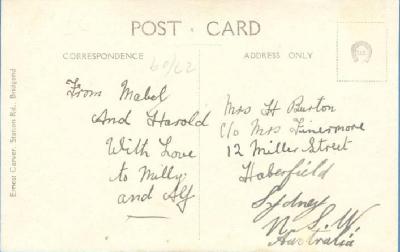 POST CARD
CORRESPONDENCE
ADDRESS ONLY
60/22
From Mabel
And Harold
With Love
to Milly
and Alf
Mrs H Burton
C/o Mrs Finermore
12 Miller Street
Haberfield
Sydney
N.S.W.
Australia
Ernest Carver, Station Rd., Bridgend